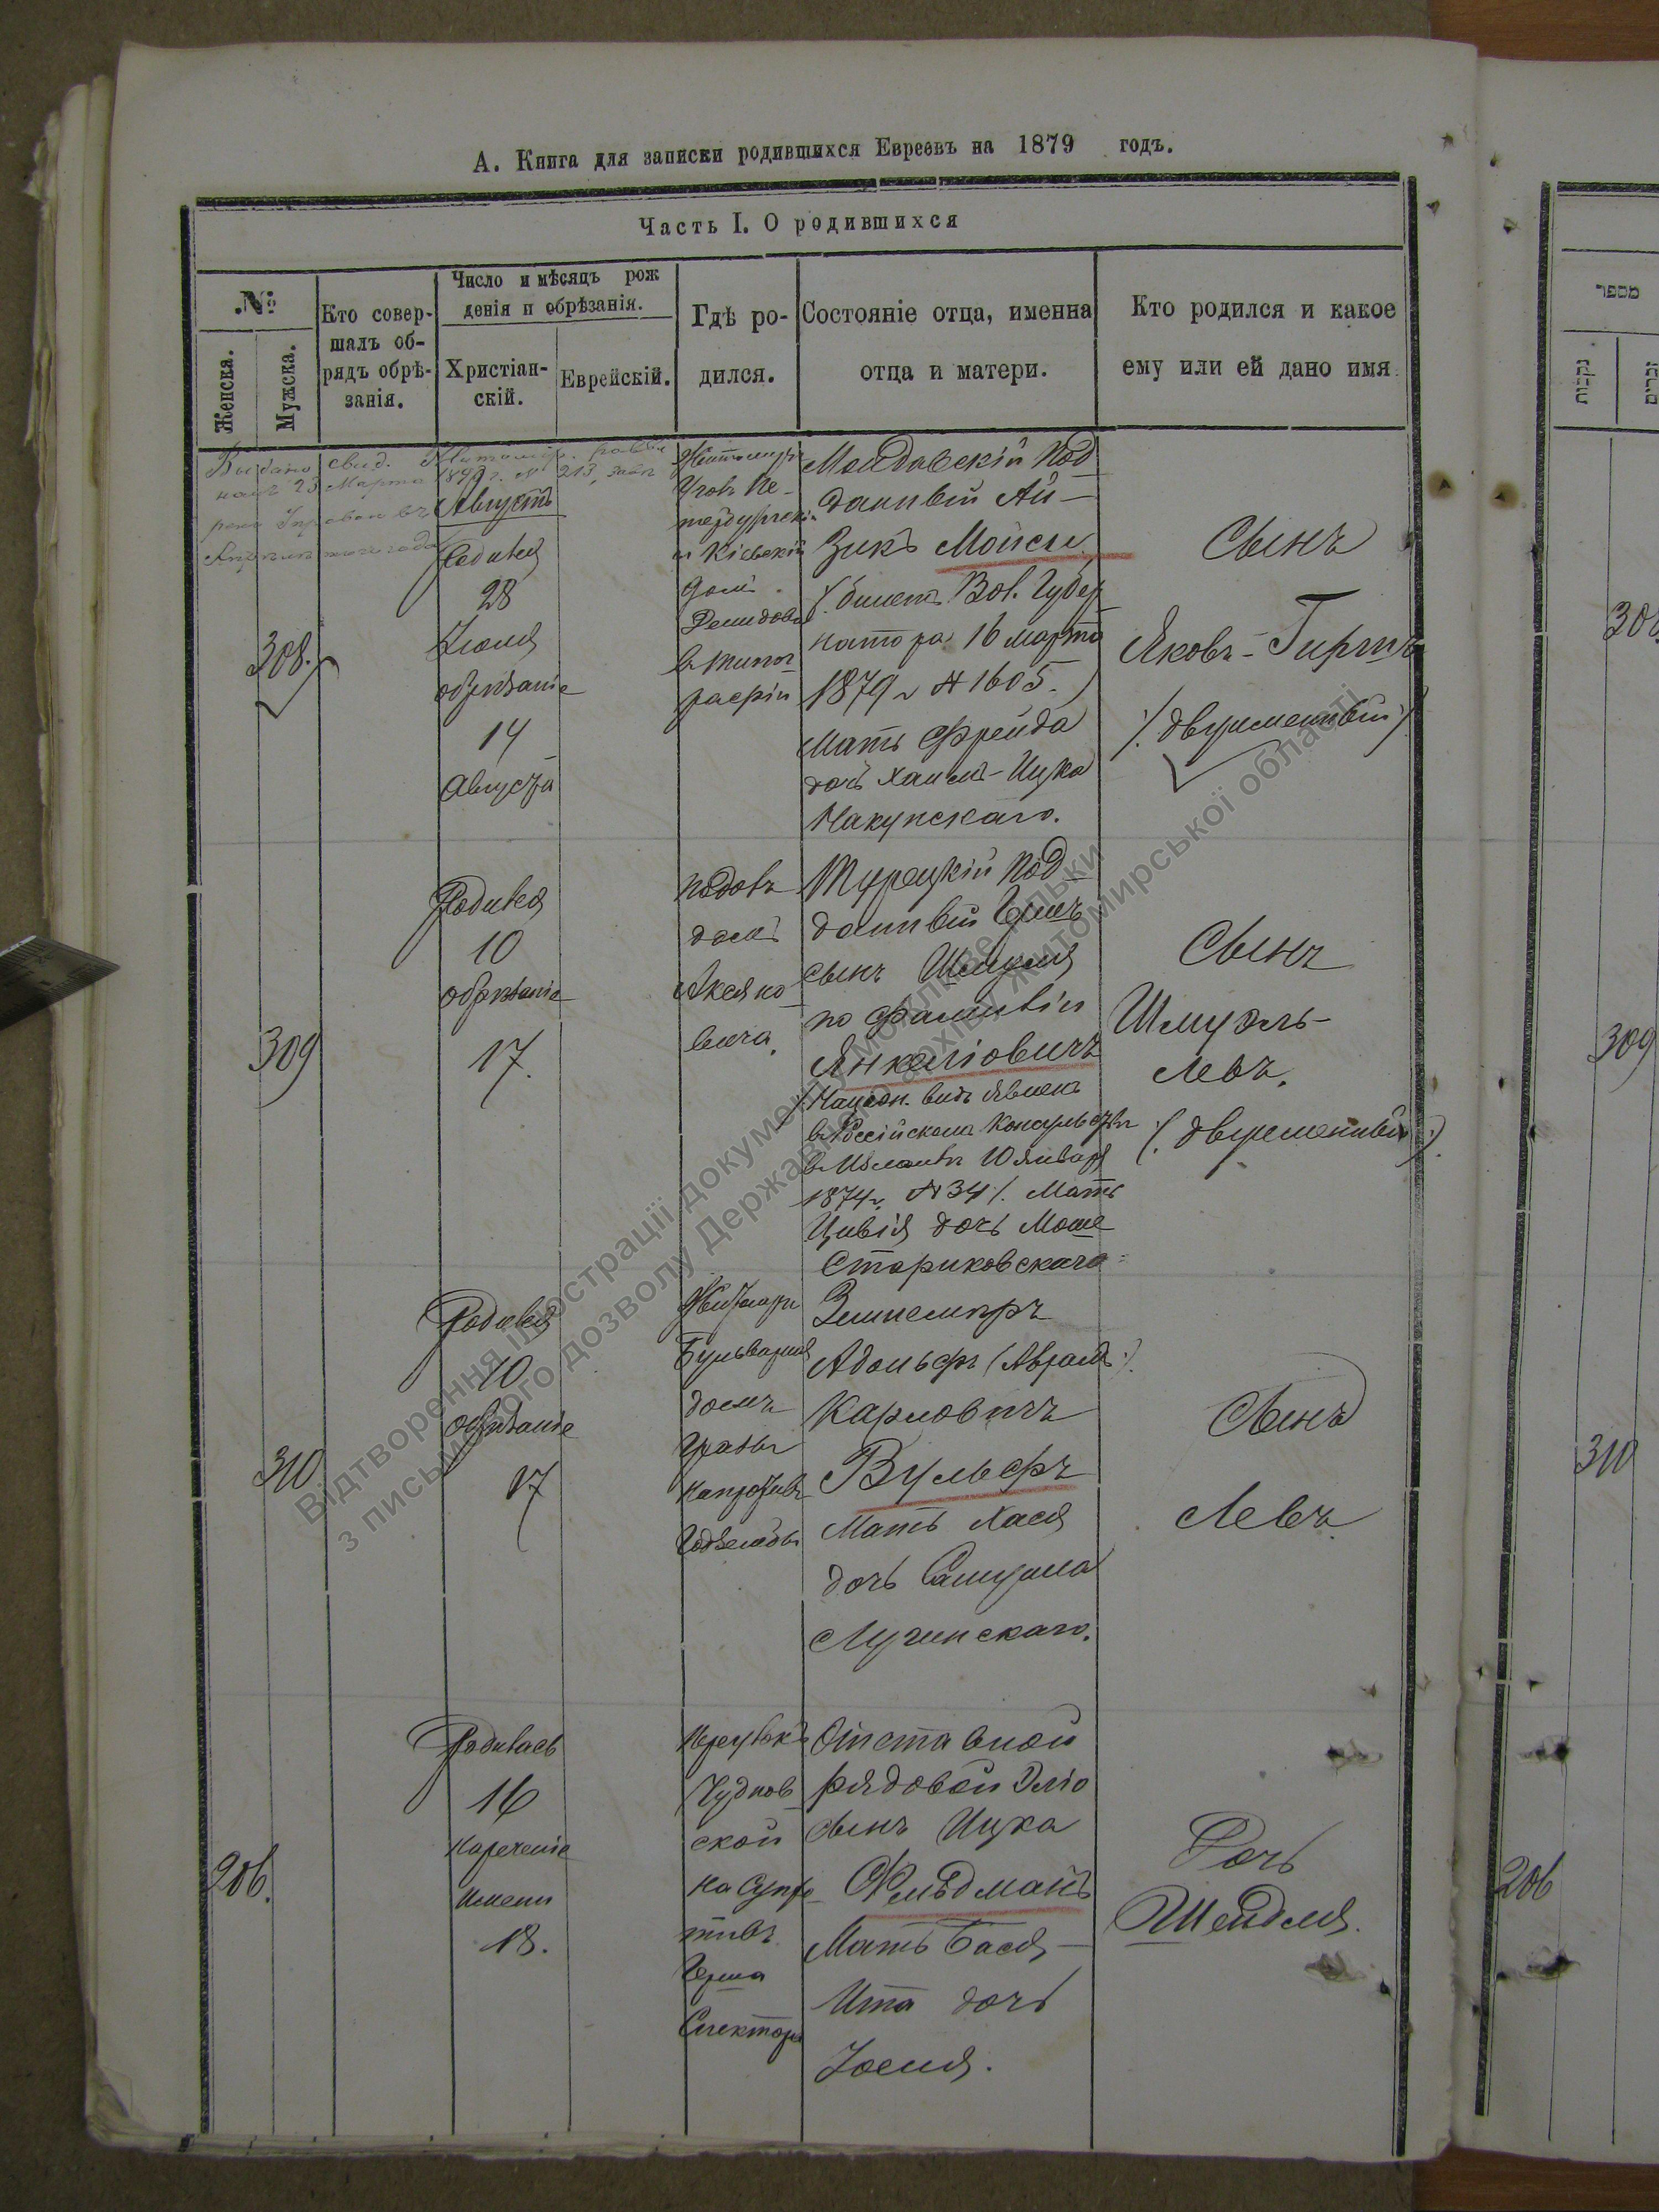 А. Книга для записки родившихся Евреевъ на 1879 годъ.
Часть I. О родившихся
№
Женска.
Мужска.
Кто совер-
шалъ об-
рядъ обрѣ-
занія.
Число и мѣсяцъ рож
денія и обрѣзанія.
Христіан-
скій.
Еврейскій.
Гдѣ ро-
дился.
Состояніе отца, именна
отца и матери.
Кто родился и какое
ему или ей дано имя
Выдано свид.
23 Марта
№ 213
308.
Августъ
Родился
28
Іюля
обрѣзаніе
14
Августа
Житомиръ
и Кіевской
домъ
Демидова
Молдавскій Под-
данный Ай-
зикъ Мойсей
(билетъ Вол. Губер-
натора 16 марта
1879 г № 1605.)
Мать Фрейда
дочь Хаимъ-Ицка
Сынъ
Яковъ-Гиршъ
(двуименный)
309
Родился
10
обрѣзаніе
17.
домъ
вича.
Турецкій Под-
данный
сынъ Шмуля
по фамиліи
Янкеліовичъ
(Націон. видъ явленъ
в Россійскомъ Консульствѣ
10 Января
1874 г. № 34). Мать
Цивія дочь Моше
Стариковскаго
Сынъ
Шмуэль-
Левъ.
(двуименный)
310
Родился
10
обрѣзаніе
17
Житомиръ
Бульварная
домъ
напротивъ
Адольфъ (Аврамъ)
Карловичъ
Вульфъ
Мать Хася
дочь Самуила
Лугинскаго.
Сынъ
Левъ.
206.
Родилась
16
Нареченіе
имени
18.
Переулокъ
Чуднов-
ской
на супро-
тивъ
Герша
Спектора
Отставной
рядовой Эліо
сынъ Ицка
Фельдманъ
Мать Бася-
Ита дочь
Іосля.
Дочь
Шейдля.
מספר
נקבות
זכרים
308
309
310
206
Відтворення ілюстрації документу можливе тільки
з письмового дозволу Державного архіву Житомирської області